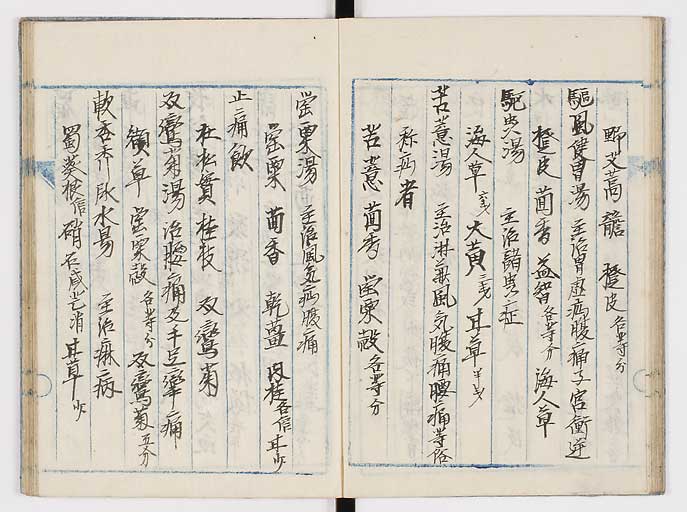 野艾蒿 膽 橙皮 各等分
驅風健胃湯 主治胃虚痛腹痛子宮衝逆
橙皮 茴香 益智 各等分 海人草
驅虫湯 主治諸虫症
海人草 大黄 甘草
苦薏湯 主治淋并風気腹痛腰痛等俗
称疝者
苦薏 茴香 罌粟殻 各等分
罌粟湯 主治風気疝腹痛
罌粟 茴香 乾薑 肉桂 各信 甘少
止痛飲
杜松實 桂枝 双鸞菊
双鸞菊湯 治腰痛及手足攣痛
纈草 罌粟殻 各等分 双鸞菊 五分
主治痳病
蜀葵根 信 硝石 或芒消 甘草 少